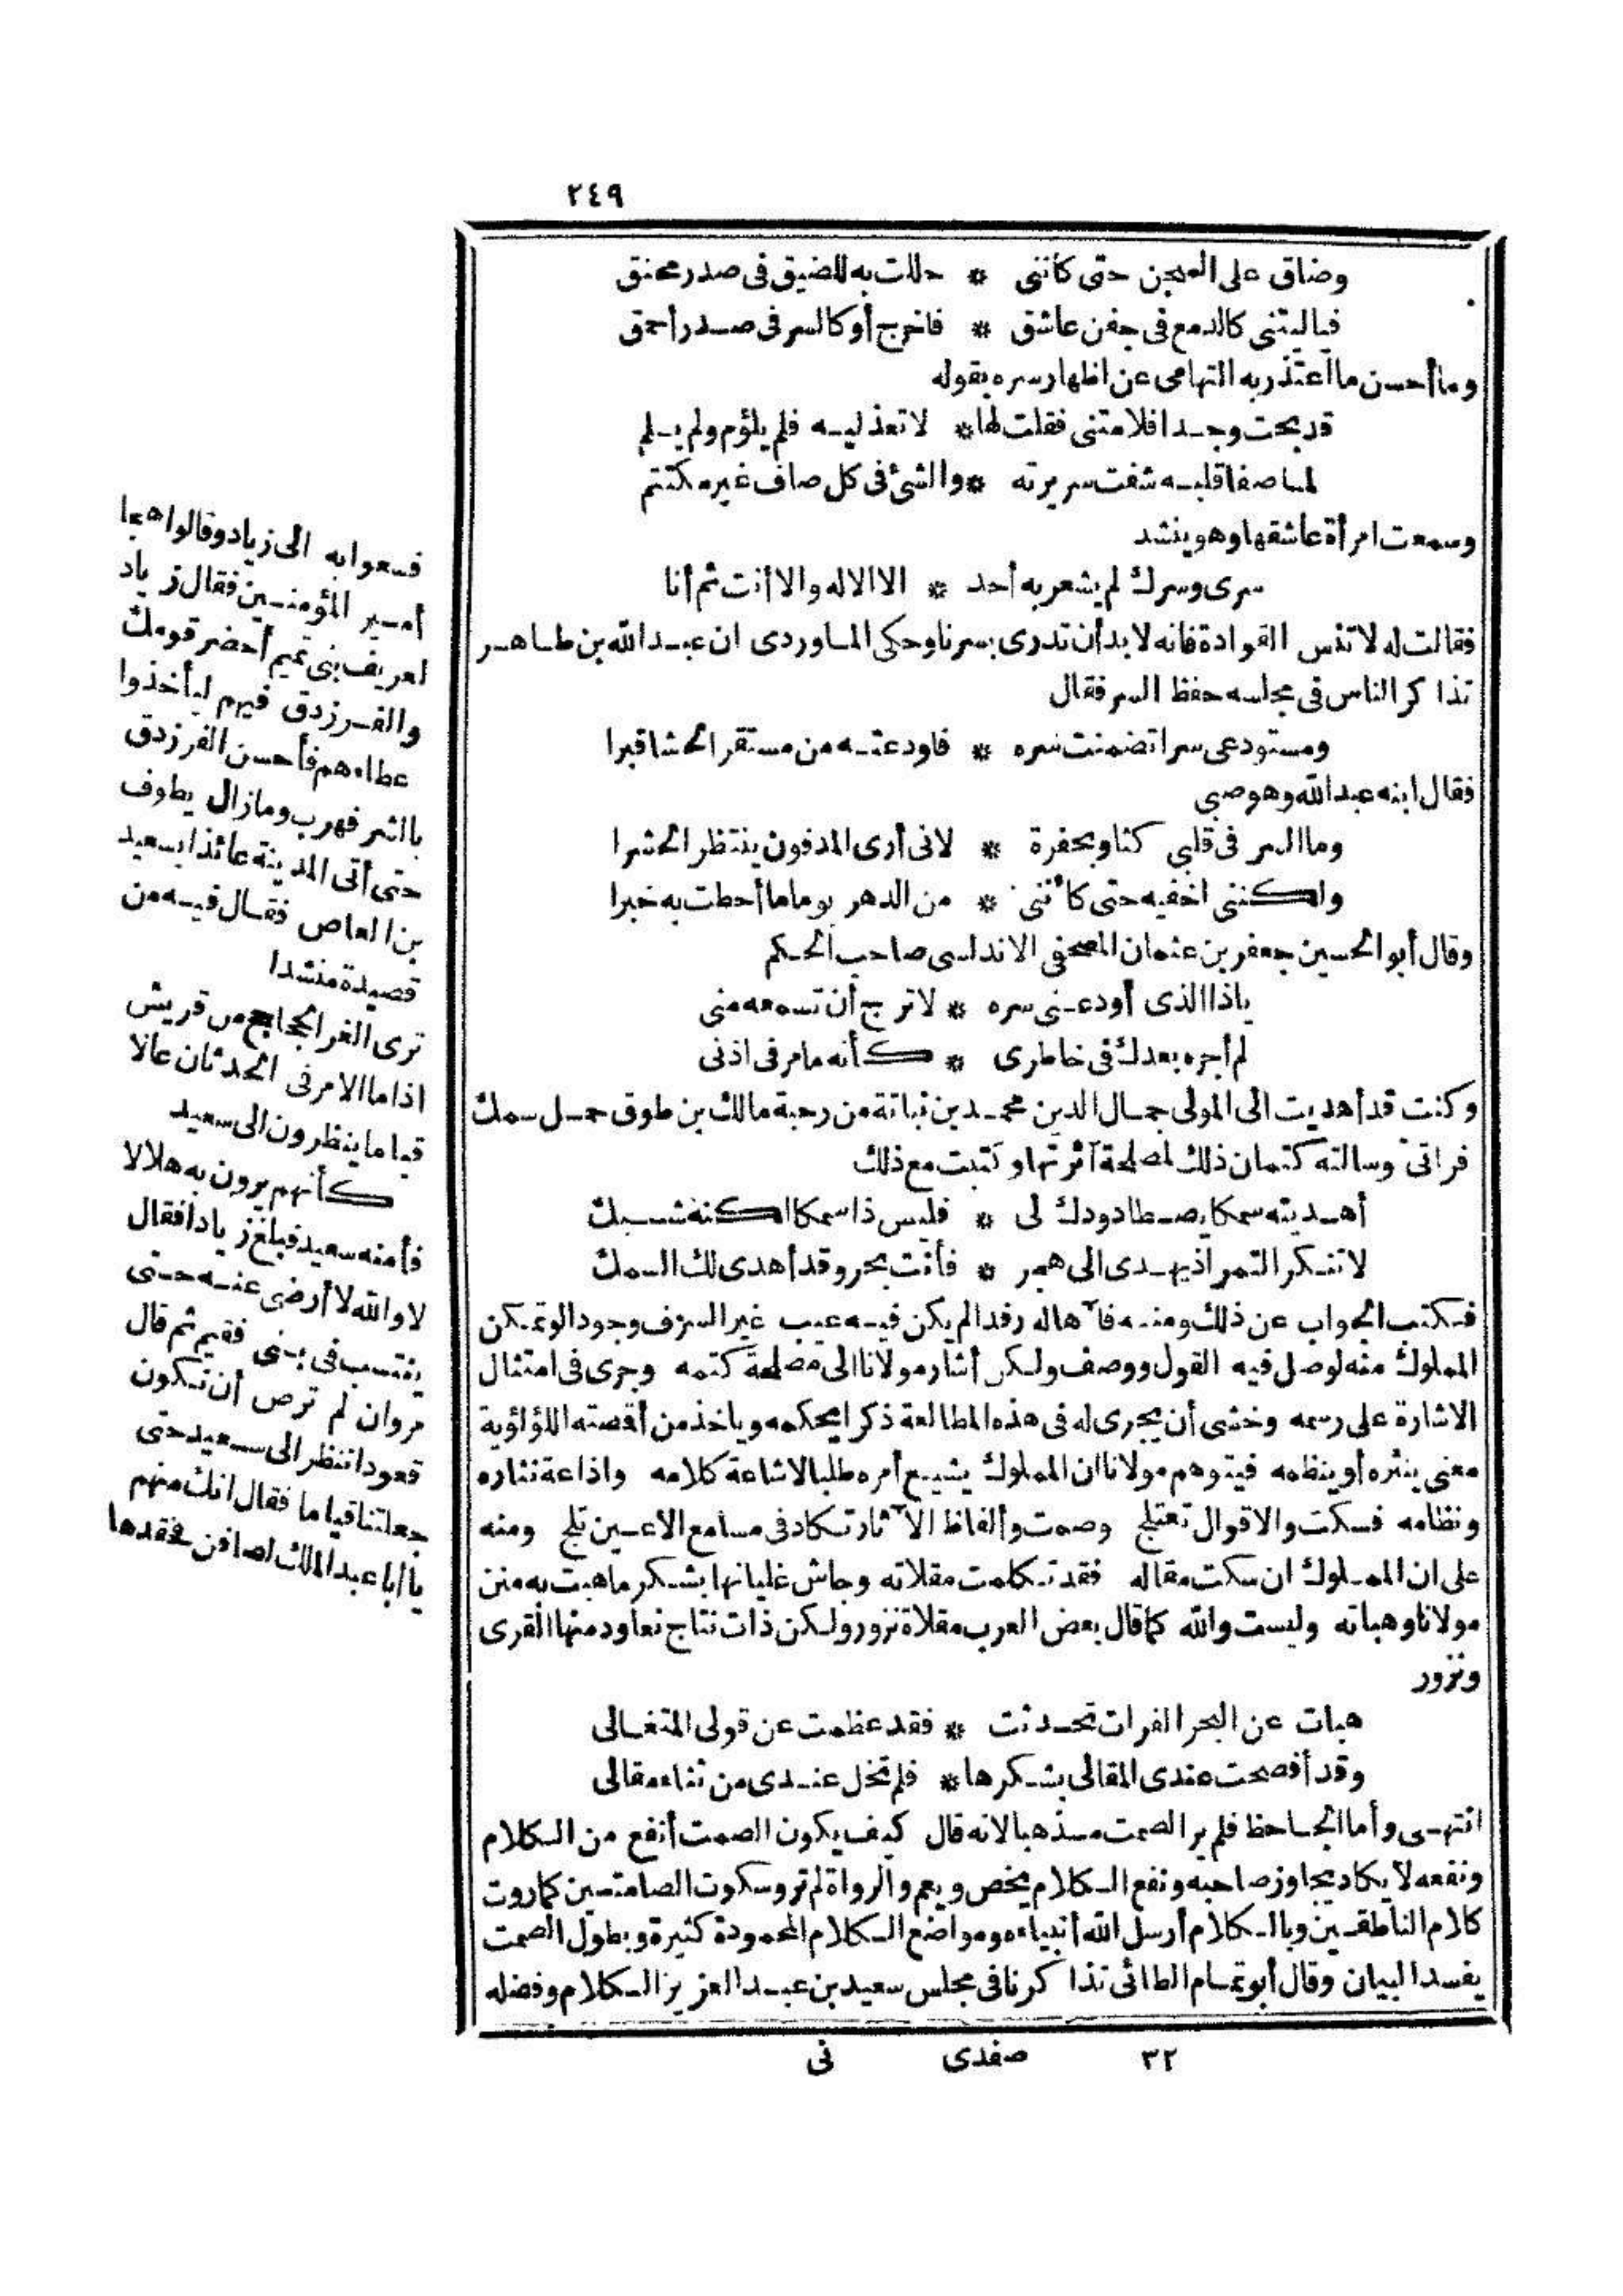 ٢٤٩
وضاق على السجن حتى كأننى * حللت به للضيق فى صدر محنق
فياليتنى كالدمع فى جفن عاشق * فاخرج أو كالسر فى صدر أحمق
وما أحسن ما اعتذر به التهامى عن اظهار سره بقوله
قد بحت وجدا فلامتنى فقلت لها * لا تعذليه فلم يلؤم ولم يلم
لما صفا قلبه شفت سريرته * والشئ فى كل صاف غير مكتتم
وسمعت امرأة عاشقها وهو ينشد
سرى وسرك لم يشعر به أحد * الا الاله والا أنت ثم أنا
فقالت له لا تنس القوادة فانه لا بد أن تدرى بسرنا وحكى الماوردى ان عبد الله بن طاهر
تذاكر الناس فى مجلسه حفظ السر فقال
ومستودعى سرا تضمنت سره * فاودعته من مستقر الحشا قبرا
فقال ابنه عبد الله وهو صبى
وما السر فى قلبى كثاو بحفرة * لانى أرى المدفون ينتظر الحشرا
ولكننى اخفيه حتى كأننى * من الدهر يوما ما أحطت به خبرا
وقال أبو الحسين جعفر بن عثمان المصحفى الاندلسى صاحب الحكم
ياذا الذى أودعنى سره * لا ترج أن تسمعه منى
لم أجره بعدك فى خاطرى * كأنه ما مر فى اذنى
وكنت قد أهديت الى المولى جمال الدين محمد بن نباتة من رحبة مالك بن طوق حمل سمك
فراتى وسالته كتمان ذلك لمصلحة آثرتها وكتبت مع ذلك
أهديته سمكا يصطاد ودك لى * فليس ذا سمكا لكنه شبك
لا تنكر التمر اذ يهدى الى هجر * فأنت بحر وقد أهدى لك السمك
فكتب الجواب عن ذلك ومنه فآها له رفدا لم يكن فيه عيب غير السرف وجودا لو تمكن
المملوك منه لوصل فيه القول ووصف ولكن أشار مولانا الى مصلحة كتمه وجرى فى امتثال
الاشارة على رسمه وخشى أن يجرى له فى هذه المطالعة ذكرا يحكمه وياخذ من أقصته اللؤلؤية
معنى ينثره أو ينظمه فيتوهم مولانا ان المملوك يشيع أمره طلبا لاشاعة كلامه واذاعة نثاره
ونظامه فسكت والاقوال تعتلج وصمت وألفاظ الآثار تكاد فى مسامع الاعين تلج ومنه
على ان المملوك ان سكت مقاله فقد تكلمت مقلاته وجاش غليانها بشكر ما هبت به منن
مولانا وهباته وليست والله كما قال بعض العرب مقلاة نزور ولكن ذات نتاج تعاود منها القرى
ونزور
هبات عن البحر الفرات تحدثت * فقد عظمت عن قولى المتغالى
وقد أفصحت عندى المقالى بشكرها * فلم تخل عندى من ثناء مقالى
انتهى وأما الجاحظ فلم ير الصمت مذهبا لانه قال كيف يكون الصمت أنفع من الكلام
ونفعه لا يكاد يجاوز صاحبه ونفع الكلام يخص ويعم والرواة لم ترو سكوت الصامتين كما روت
كلام الناطقين وبالكلام أرسل الله أنبياءه ومواضع الكلام المحمودة كثيرة وبطول الصمت
يفسد البيان وقال أبو تمام الطائى تذاكرنا فى مجلس سعيد بن عبد العزيز الكلام وفضله
٣٢ صفدى نى
فسعوا به الى زياد وقالوا هجا
أمير المؤمنين فقال زياد
لعريف بنى تميم أحضر قومك
والفرزدق فيهم ليأخذوا
عطاءهم فأحس الفرزدق
بالشر فهرب وما زال يطوف
حتى أتى المدينة عائذا بسعيد
بن العاص فقال فيه من
قصيدة منشدا
ترى الغر الجحاجح من قريش
اذا ما الامر فى الحدثان عالا
قياما ينظرون الى سعيد
كأنهم يرون به هلالا
فأمنه سعيد فبلغ زيادا فقال
لا والله لا أرضى عنه حتى
ينتسب فى بنى فقيم ثم قال
مروان لم ترض أن نكون
قعودا ننظر الى سعيد حتى
جعلتنا قياما فقال انك منهم
يا أبا عبد الملك لصافن فحقدها